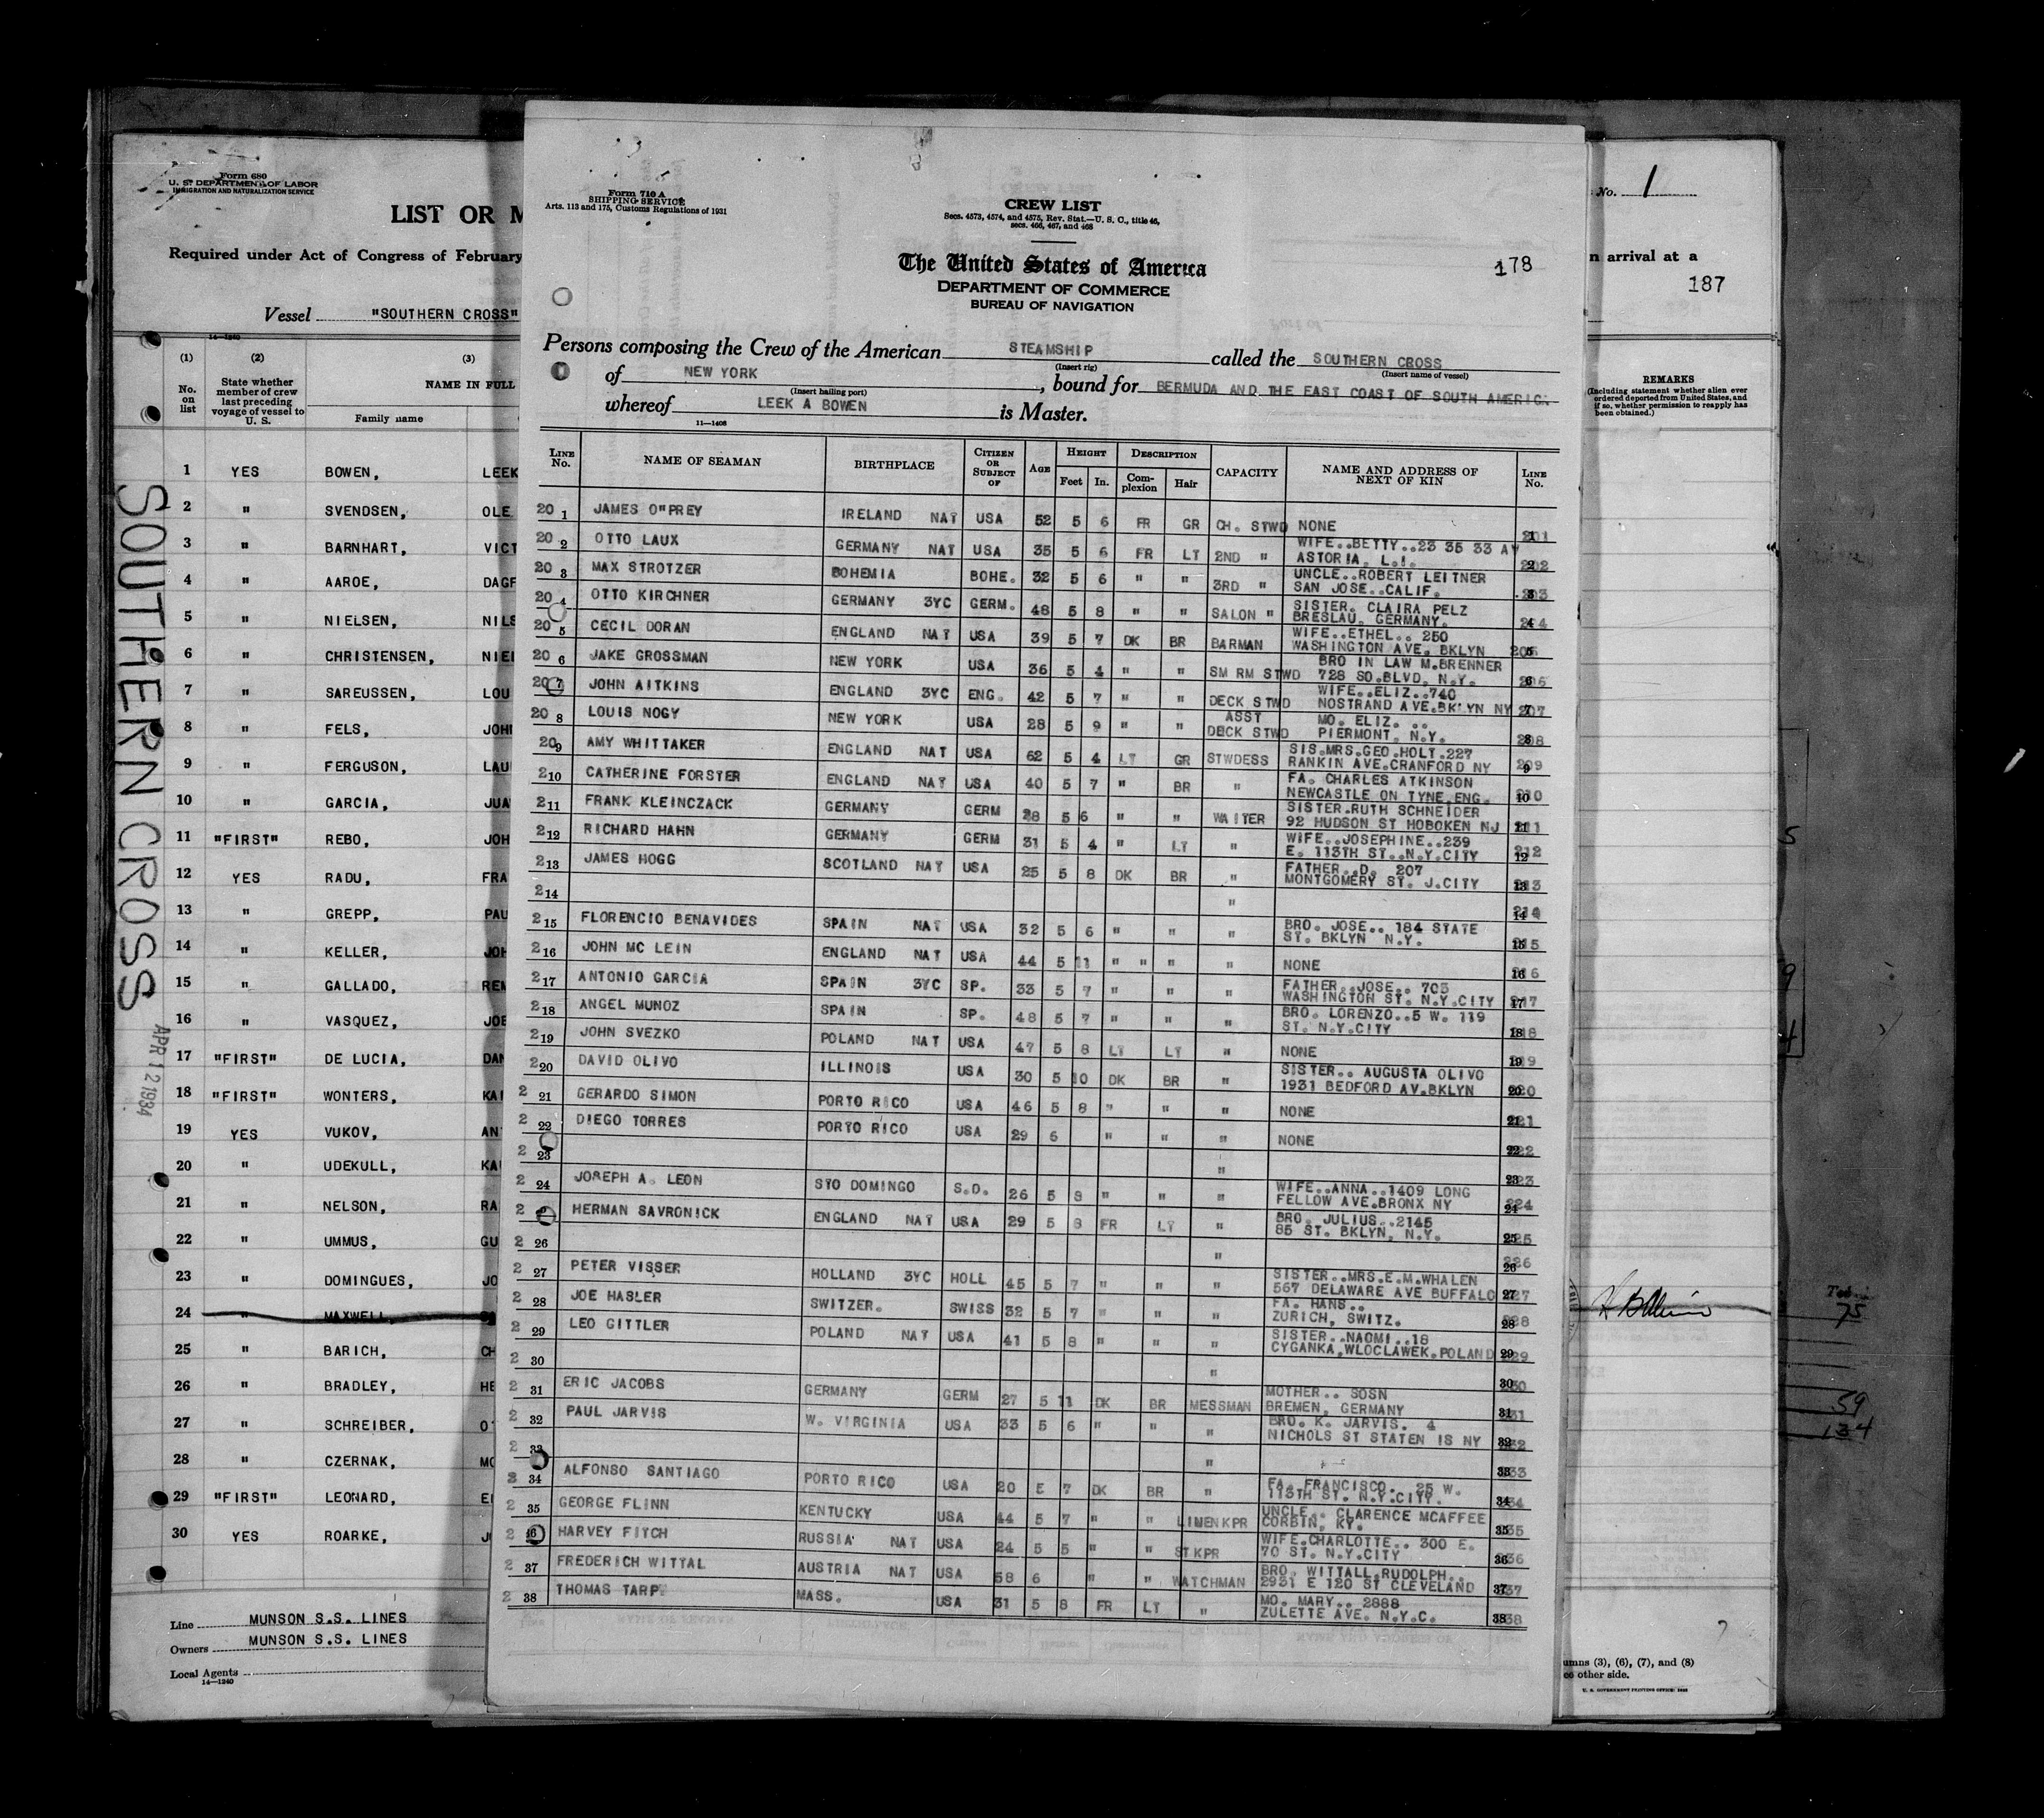 Form 680
U. S. DEPARTMENT OF LABOR
IMMIGRATION AND NATURALIZATION SERVICE
LIST OR M
Required under Act of Congress of February
Vessel "SOUTHERN CROSS"
14—1240
(1) (2) (3)
No. on list
State whether member of crew last preceding voyage of vessel to U. S.
NAME IN FULL
Family name
1 YES BOWEN, LEEK
2 " SVENDSEN, OLE
3 " BARNHART, VICT
4 " AAROE, DAGF
5 " NIELSEN, NILS
6 " CHRISTENSEN, NIEL
7 " SAREUSSEN, LOU
8 " FELS, JOHN
9 " FERGUSON, LAU
10 " GARCIA, JUA
11 "FIRST" REBO, JOH
12 YES RADU, FRA
13 " GREPP, PAU
14 " KELLER, JOH
15 " GALLADO, REM
16 " VASQUEZ, JOE
17 "FIRST" DE LUCIA, DAN
18 "FIRST" WONTERS, KA
19 YES VUKOV, AN
20 " UDEKULL, KA
21 " NELSON, RA
22 " UMMUS, GU
23 " DOMINGUES, JO
24 " MAXWELL,
25 " BARICH, CH
26 " BRADLEY, HE
27 " SCHREIBER, O
28 " CZERNAK, MO
29 "FIRST" LEONARD, E
30 YES ROARKE, J
Line MUNSON S.S. LINES
Owners MUNSON S.S. LINES
Local Agents
14—1240
SOUTHERN CROSS
APR 12 1934
Form 710 A
SHIPPING SERVICE
Arts. 113 and 175, Customs Regulations of 1931
CREW LIST
Secs. 4573, 4574, and 4575, Rev. Stat.—U. S. C., title 46,
secs. 466, 467, and 468
The United States of America
DEPARTMENT OF COMMERCE
BUREAU OF NAVIGATION
178
Persons composing the Crew of the American STEAMSHIP called the SOUTHERN CROSS
(Insert rig) (Insert name of vessel)
of NEW YORK, bound for BERMUDA AND THE EAST COAST OF SOUTH AMERICA
(Insert hailing port)
whereof LEEK A BOWEN is Master.
11—1408
LINE No. NAME OF SEAMAN BIRTHPLACE CITIZEN OR SUBJECT OF AGE HEIGHT Feet In. DESCRIPTION Complexion Hair CAPACITY NAME AND ADDRESS OF NEXT OF KIN LINE No.
20 1 JAMES O"PREY IRELAND NAT USA 52 5 6 FR GR CH. STWD NONE 201
20 2 OTTO LAUX GERMANY NAT USA 35 5 6 FR LT 2ND " WIFE..BETTY..23 35 33 AV ASTORIA, L.I. 202
20 3 MAX STROTZER BOHEMIA BOHE. 32 5 6 " " 3RD " UNCLE..ROBERT LEITNER SAN JOSE..CALIF. 203
20 4 OTTO KIRCHNER GERMANY 3YC GERM. 48 5 8 " " SALON " SISTER. CLAIRA PELZ BRESLAU, GERMANY. 204
20 5 CECIL DORAN ENGLAND NAT USA 39 5 7 DK BR BARMAN WIFE..ETHEL.. 250 WASHINGTON AVE. BKLYN 205
20 6 JAKE GROSSMAN NEW YORK USA 36 5 4 " " SM RM STWD BRO IN LAW M.BRENNER 728 SO.BLVD, N.Y. 206
20 7 JOHN AITKINS ENGLAND 3YC ENG. 42 5 7 " " DECK STWD WIFE..ELIZ..740 NOSTRAND AVE.BKLYN NY 207
20 8 LOUIS NOGY NEW YORK USA 28 5 9 " " ASST DECK STWD MO. ELIZ. .. PIERMONT, N.Y. 208
20 9 AMY WHITTAKER ENGLAND NAT USA 62 5 4 LT GR STWDESS SIS.MRS.GEO.HOLT.227 RANKIN AVE.CRANFORD NY 209
2 10 CATHERINE FORSTER ENGLAND NAT USA 40 5 7 " BR " FA. CHARLES ATKINSON NEWCASTLE ON TYNE,ENG. 210
2 11 FRANK KLEINCZACK GERMANY GERM 28 5 6 " " WAITER SISTER.RUTH SCHNEIDER 92 HUDSON ST HOBOKEN NJ 211
2 12 RICHARD HAHN GERMANY GERM 31 5 4 " LT " WIFE..JOSEPHINE..239 E. 113TH ST..N.Y.CITY 212
2 13 JAMES HOGG SCOTLAND NAT USA 25 5 8 DK BR " FATHER..D. 207 MONTGOMERY ST. J.CITY 213
2 14 " 214
2 15 FLORENCIO BENAVIDES SPAIN NAT USA 32 5 6 " " " BRO. JOSE.. 184 STATE ST. BKLYN N.Y. 215
2 16 JOHN MC LEIN ENGLAND NAT USA 44 5 11 " " " " NONE 216
2 17 ANTONIO GARCIA SPAIN 3YC SP. 33 5 7 " " " FATHER..JOSE.. 703 WASHINGTON ST. N.Y.CITY 217
2 18 ANGEL MUNOZ SPAIN SP. 48 5 7 " " " BRO. LORENZO..5 W. 119 ST. N.Y.CITY 218
2 19 JOHN SVEZKO POLAND NAT USA 47 5 8 LT LT " NONE 219
2 20 DAVID OLIVO ILLINOIS USA 30 5 10 DK BR " SISTER.. AUGUSTA OLIVO 1931 BEDFORD AV.BKLYN 220
2 21 GERARDO SIMON PORTO RICO USA 46 5 8 " " " NONE 221
2 22 DIEGO TORRES PORTO RICO USA 29 6 " " " NONE 222
2 23 " 223
2 24 JOSEPH A. LEON STO DOMINGO S.D. 26 5 8 " " " WIFE..ANNA..1409 LONG FELLOW AVE.BRONX NY 224
2 HERMAN SAVRONICK ENGLAND NAT USA 29 5 8 FR LT " BRO. JULIUS..2145 85 ST. BKLYN, N.Y. 225
2 26 " 226
2 27 PETER VISSER HOLLAND 3YC HOLL 45 5 7 " " " SISTER..MRS.E.M.WHALEN 567 DELAWARE AVE BUFFALO 227
2 28 JOE HASLER SWITZER. SWISS 32 5 7 " " " FA. HANS.. ZURICH, SWITZ. 228
2 29 LEO GITTLER POLAND NAT USA 41 5 8 " " " SISTER..NAOMI..18 CYGANKA,WLOCLAWEK.POLAND 229
2 30 " 230
2 31 ERIC JACOBS GERMANY GERM 27 5 11 DK BR MESSMAN MOTHER.. SOSN BREMEN, GERMANY 231
2 32 PAUL JARVIS W. VIRGINIA USA 33 5 6 " " " BRO. K. JARVIS. 4 NICHOLS ST STATEN IS NY 232
2 33 " 233
2 34 ALFONSO SANTIAGO PORTO RICO USA 20 5 7 DK BR " FA. FRANCISCO. 25 W. 113TH ST. N.Y.CITY. 234
2 35 GEORGE FLINN KENTUCKY USA 44 5 7 " " LINENKPR UNCLE.. CLARENCE MCAFFEE CORBIN, KY. 235
2 36 HARVEY FITCH RUSSIA NAT USA 24 5 5 " " STKPR WIFE.CHARLOTTE.. 300 E. 70 ST. N.Y.CITY 236
2 37 FREDERICH WITTAL AUSTRIA NAT USA 58 6 " " WATCHMAN BRO. WITTALL.RUDOLPH.. 2931 E 120 ST CLEVELAND 237
2 38 THOMAS TARP. MASS. USA 31 5 8 FR LT " MO. MARY.. 2888 ZULETTE AVE. N.Y.C. 238
No. 1
n arrival at a
187
REMARKS
(Including statement whether alien ever ordered deported from United States, and if so, whether permission to reapply has been obtained.)
75
59
134
umns (3), (6), (7), and (8)
ee other side.
U. S. GOVERNMENT PRINTING OFFICE